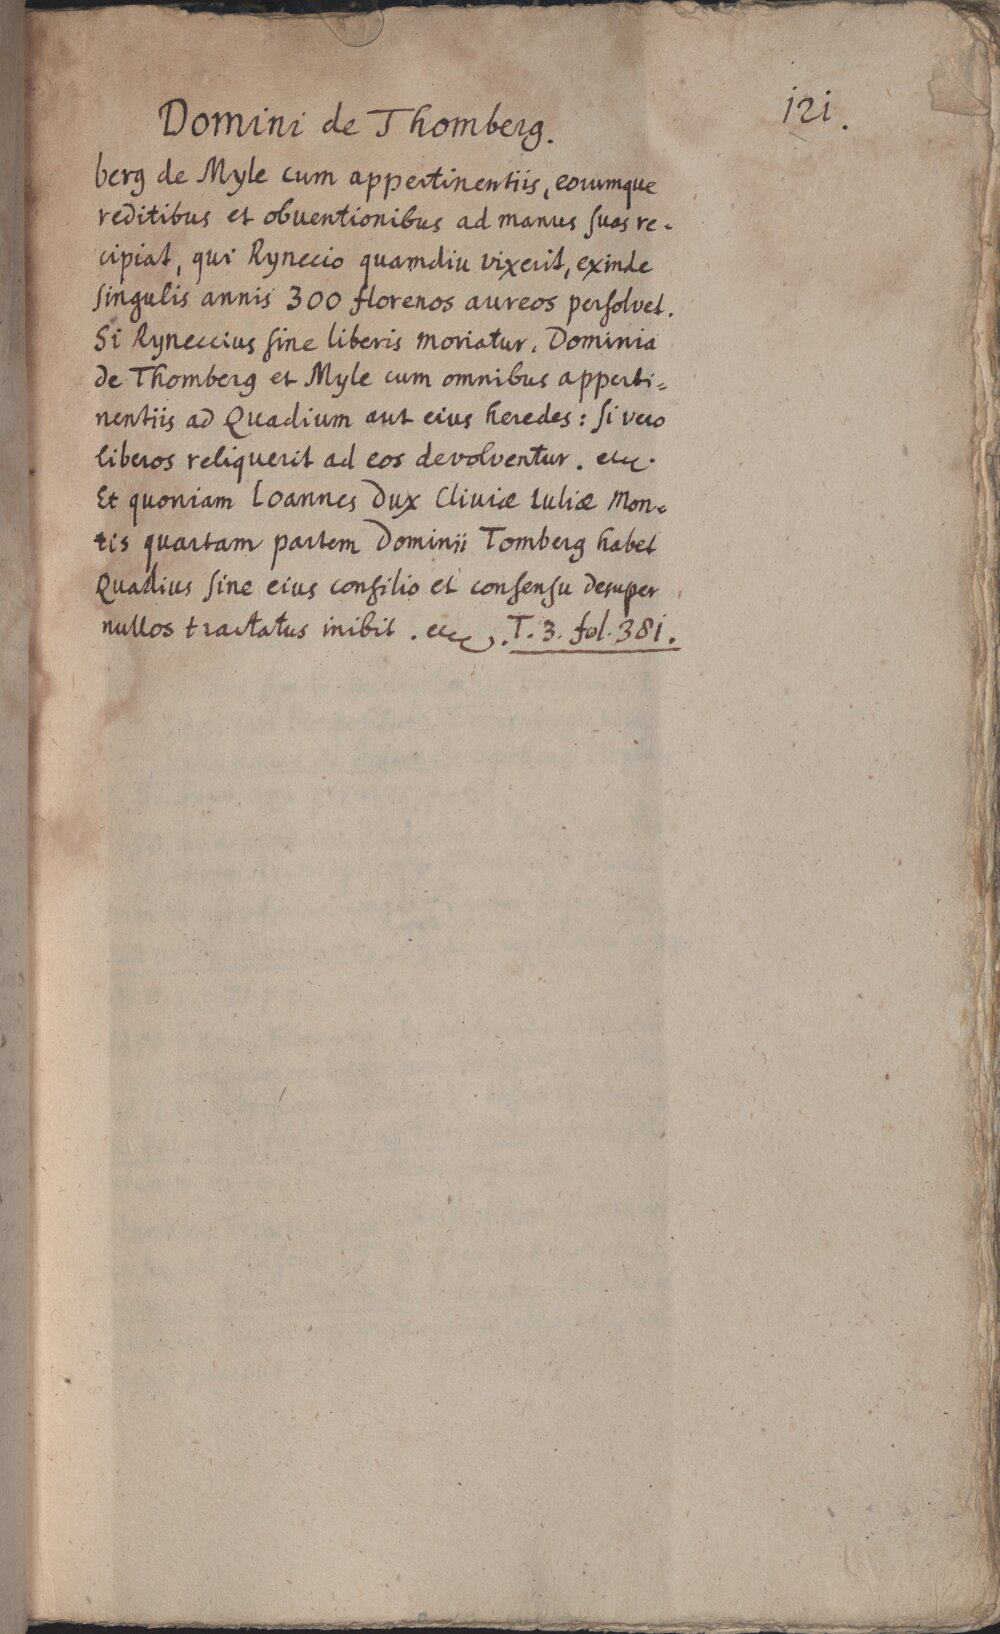 Domini de Thomberg.
121.
berg de Myle cum appertinentiis, eorumque
reditibus et obuentionibus ad manus suas re-
cipiat, qui Rynecio quamdiu vixerit, exinde
singulis annis 300 florenos aureos persolvet.
Si Ryneccius sine liberis moriatur. Dominia
de Thomberg et Myle cum omnibus apperti=
nentiis ad Quadium aut eius heredes: si vero
liberos reliquerit ad eos devolventur. etc.
Et quoniam Ioannes Dux Cliviæ Iuliæ Mon-
tis quartam partem Dominii Tomberg habet
Quadius sine eius consilio et consensu desuper
nullos tractatus inibit. etc. T. 3. fol. 381.